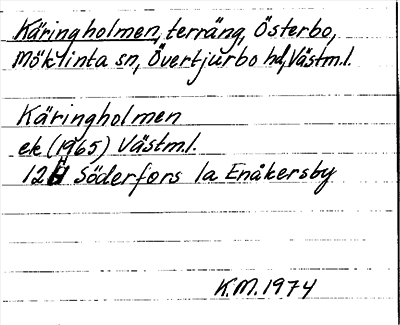 Käringholmen, terräng, Österbo,
Möklinta sn, Övertjurbo hd, Västml.
Käringholmen
ek (1965) Västml.
12 H Söderfors 1a Enåkersby
K.M. 1974